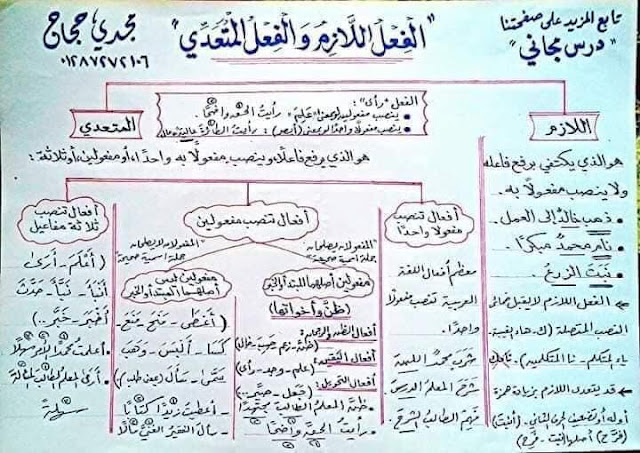 تابع المزيد على صفحتنا
"درس مجاني"
"الفعل اللازم والفعل المتعدي"
مجدي حجاج
٠١٢٨٧٢٧٢١٠٦
الفعل "رأى":
ينصب مفعولين
رأيتُ الحقَّ واضحًا.
ينصب مفعولًا واحدًا لو بمعنى (أبصر): رأيتُ الطائرةَ
اللازم
هو الذي يكتفي برفع فاعله
ولا ينصب مفعولًا به.
ذهب خالدٌ إلى العمل.
نام محمدٌ مبكرًا.
نبَتَ الزرعُ.
الفعل اللازم لا يقبل ضمائر
النصب المتصلة (ك - هاء الغيبة
ياء المتكلم - نا المتكلمين).
قد يتعدى اللازم بزيادة همزة
أوله أو تضعيف الحرف الثاني. (أنبتَ)
(فرَّح) أصلها نبت - فرح)
المتعدي
هو الذي يرفع فاعلًا وينصب مفعولًا به واحدًا، أو مفعولين، أو ثلاثة:
أفعال تنصب
مفعولًا واحدًا
معظم أفعال اللغة
العربية تنصب مفعولًا
واحدًا.
شرب محمدٌ اللبنَ
شرح المعلمُ الدرسَ.
فهم الطالبُ الشرحَ.
أفعال تنصب مفعولين
"المفعولان يصلحان
جملة اسمية صحيحة"
مفعولين أصلهما المبتدأ والخبر
(ظنَّ وأخواتها)
أفعال الظن والرجحان:
(ظنَّ - زعم - حسب - خال)
أفعال اليقين:
(علم - وجد - رأى)
أفعال التحويل:
(جعل - صيَّر ..)
ظنَّ المعلمُ الطالبَ مجتهدًا
رأيتُ الحقَّ واضحًا
"المفعولان لا يصلحان
جملة اسمية صحيحة"
مفعولين ليس
أصلهما المبتدأ والخبر
(أعطى - منح - منع -
كسا - ألبس - وهب
سمَّى - سأل (بمعنى طلب)
أعطيتُ زيدًا كتابًا
سأل الفقيرُ الغنيَّ مالًا
أفعال تنصب
ثلاثة مفاعيل
(أعلم - أرى -
أنبأ - نبّأ - حدّث
أخبر - خبّر ..)
أعلمتُ محمدًا الأمرَ سهلًا
أرى المعلمُ الطالبَ المسألةَ
سهلةً